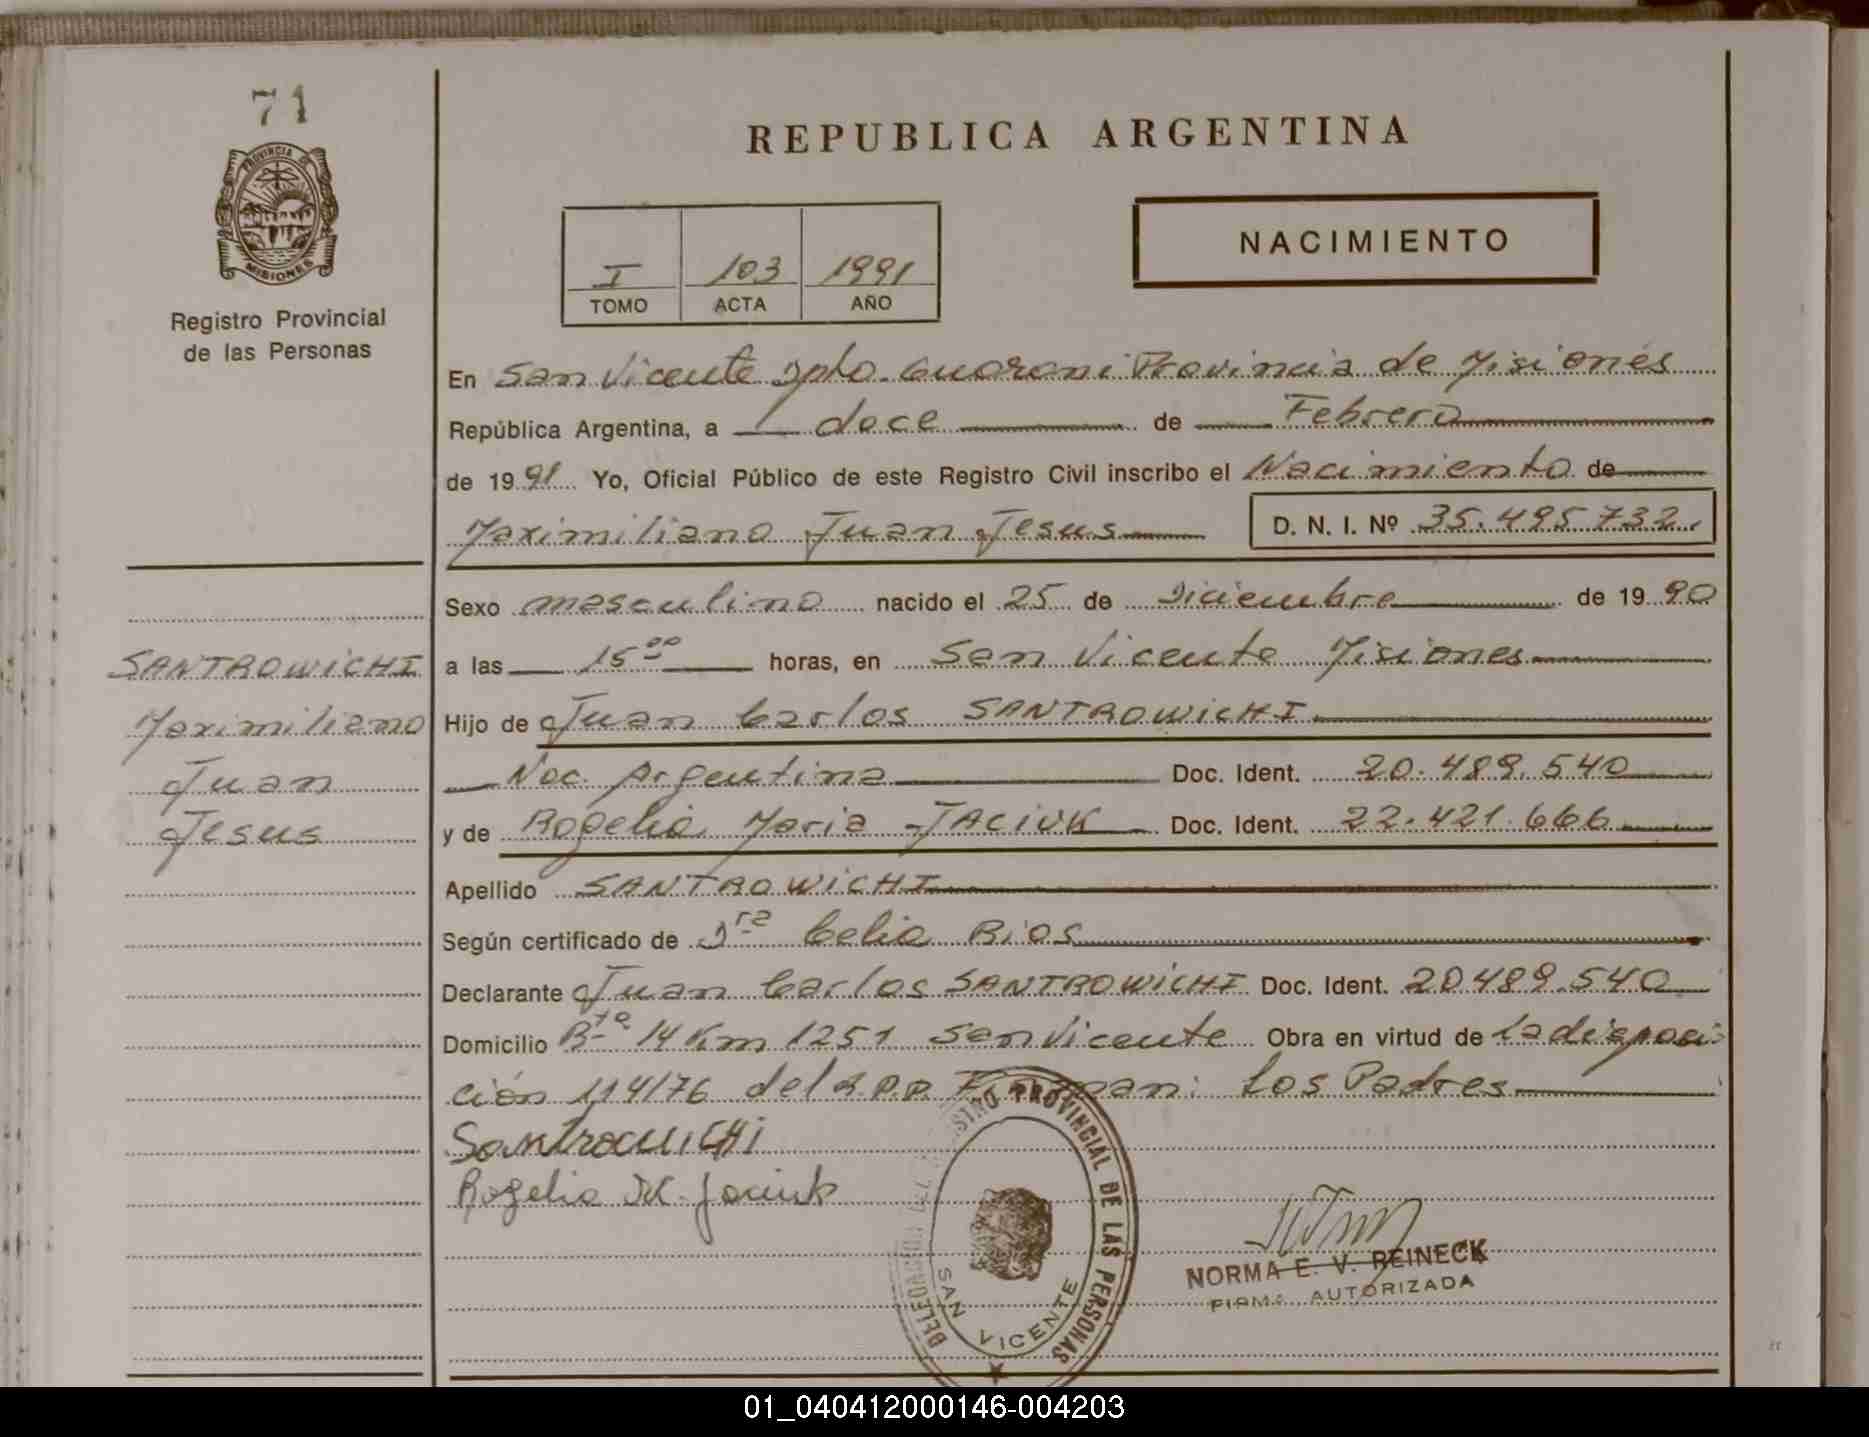 71
PROVINCIA DE
MISIONES
Registro Provincial
de las Personas
REPUBLICA ARGENTINA
I 103 1991
TOMO ACTA AÑO
NACIMIENTO
En San Vicente Dpto. Guarani Provincia de Misiones
República Argentina, a doce de Febrero
de 1991 Yo, Oficial Público de este Registro Civil inscribo el Nacimiento de
Maximiliano Juan Jesus D. N. I. Nº 35.495 732.
Sexo masculino nacido el 25 de Diciembre de 1990
a las 15 00 horas, en San Vicente Misiones
Hijo de Juan Carlos SANTROWICHI
Nac. Argentina Doc. Ident. 20.489.540
y de Rogelia Maria JACIUK Doc. Ident. 22.421.666
Apellido SANTROWICHI
Según certificado de Dra Celia Rios
Declarante Juan Carlos SANTROWICHI Doc. Ident. 20489.540
Domicilio Bto 14 Km 1251 San Vicente Obra en virtud de la disposi
ción 114/76 del R.P.P. Firman: Los Padres
SANTROWICHI
Maximiliano
Juan
Jesus
SantrowICHi
Rogelia M. Jaciuk
REGISTRO PROVINCIAL DE LAS PERSONAS
SAN VICENTE
DELEGACION
NORMA E. V. REINECK
FIRMA AUTORIZADA
01_040412000146-004203